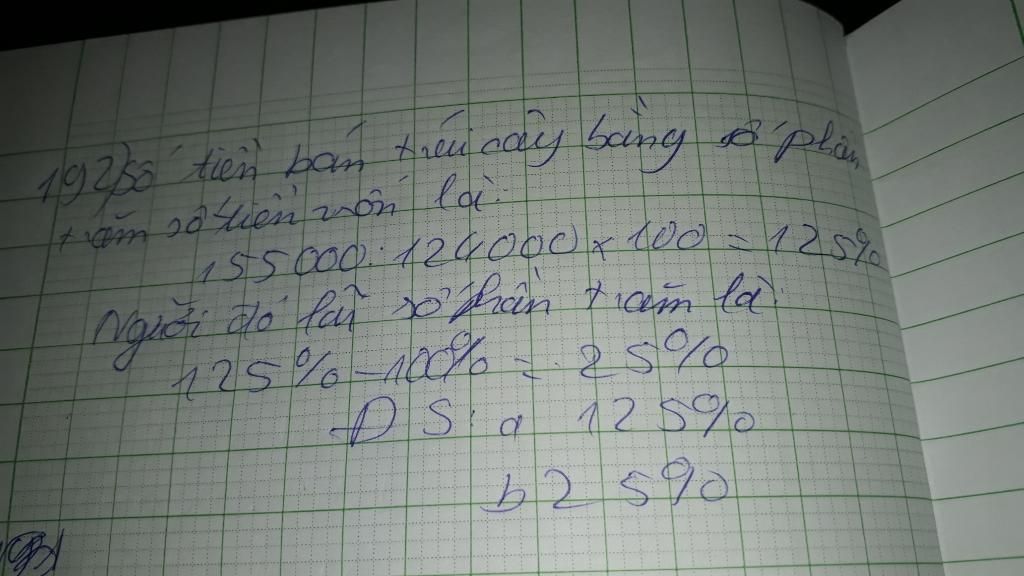 192) Số tiền bán trái cây bằng số phần
trăm số tiền vốn là:
155000:124000 × 100 = 125%
Người đó lãi số phần trăm là:
125% - 100% = 25%
ĐS: a 125%
b 25%